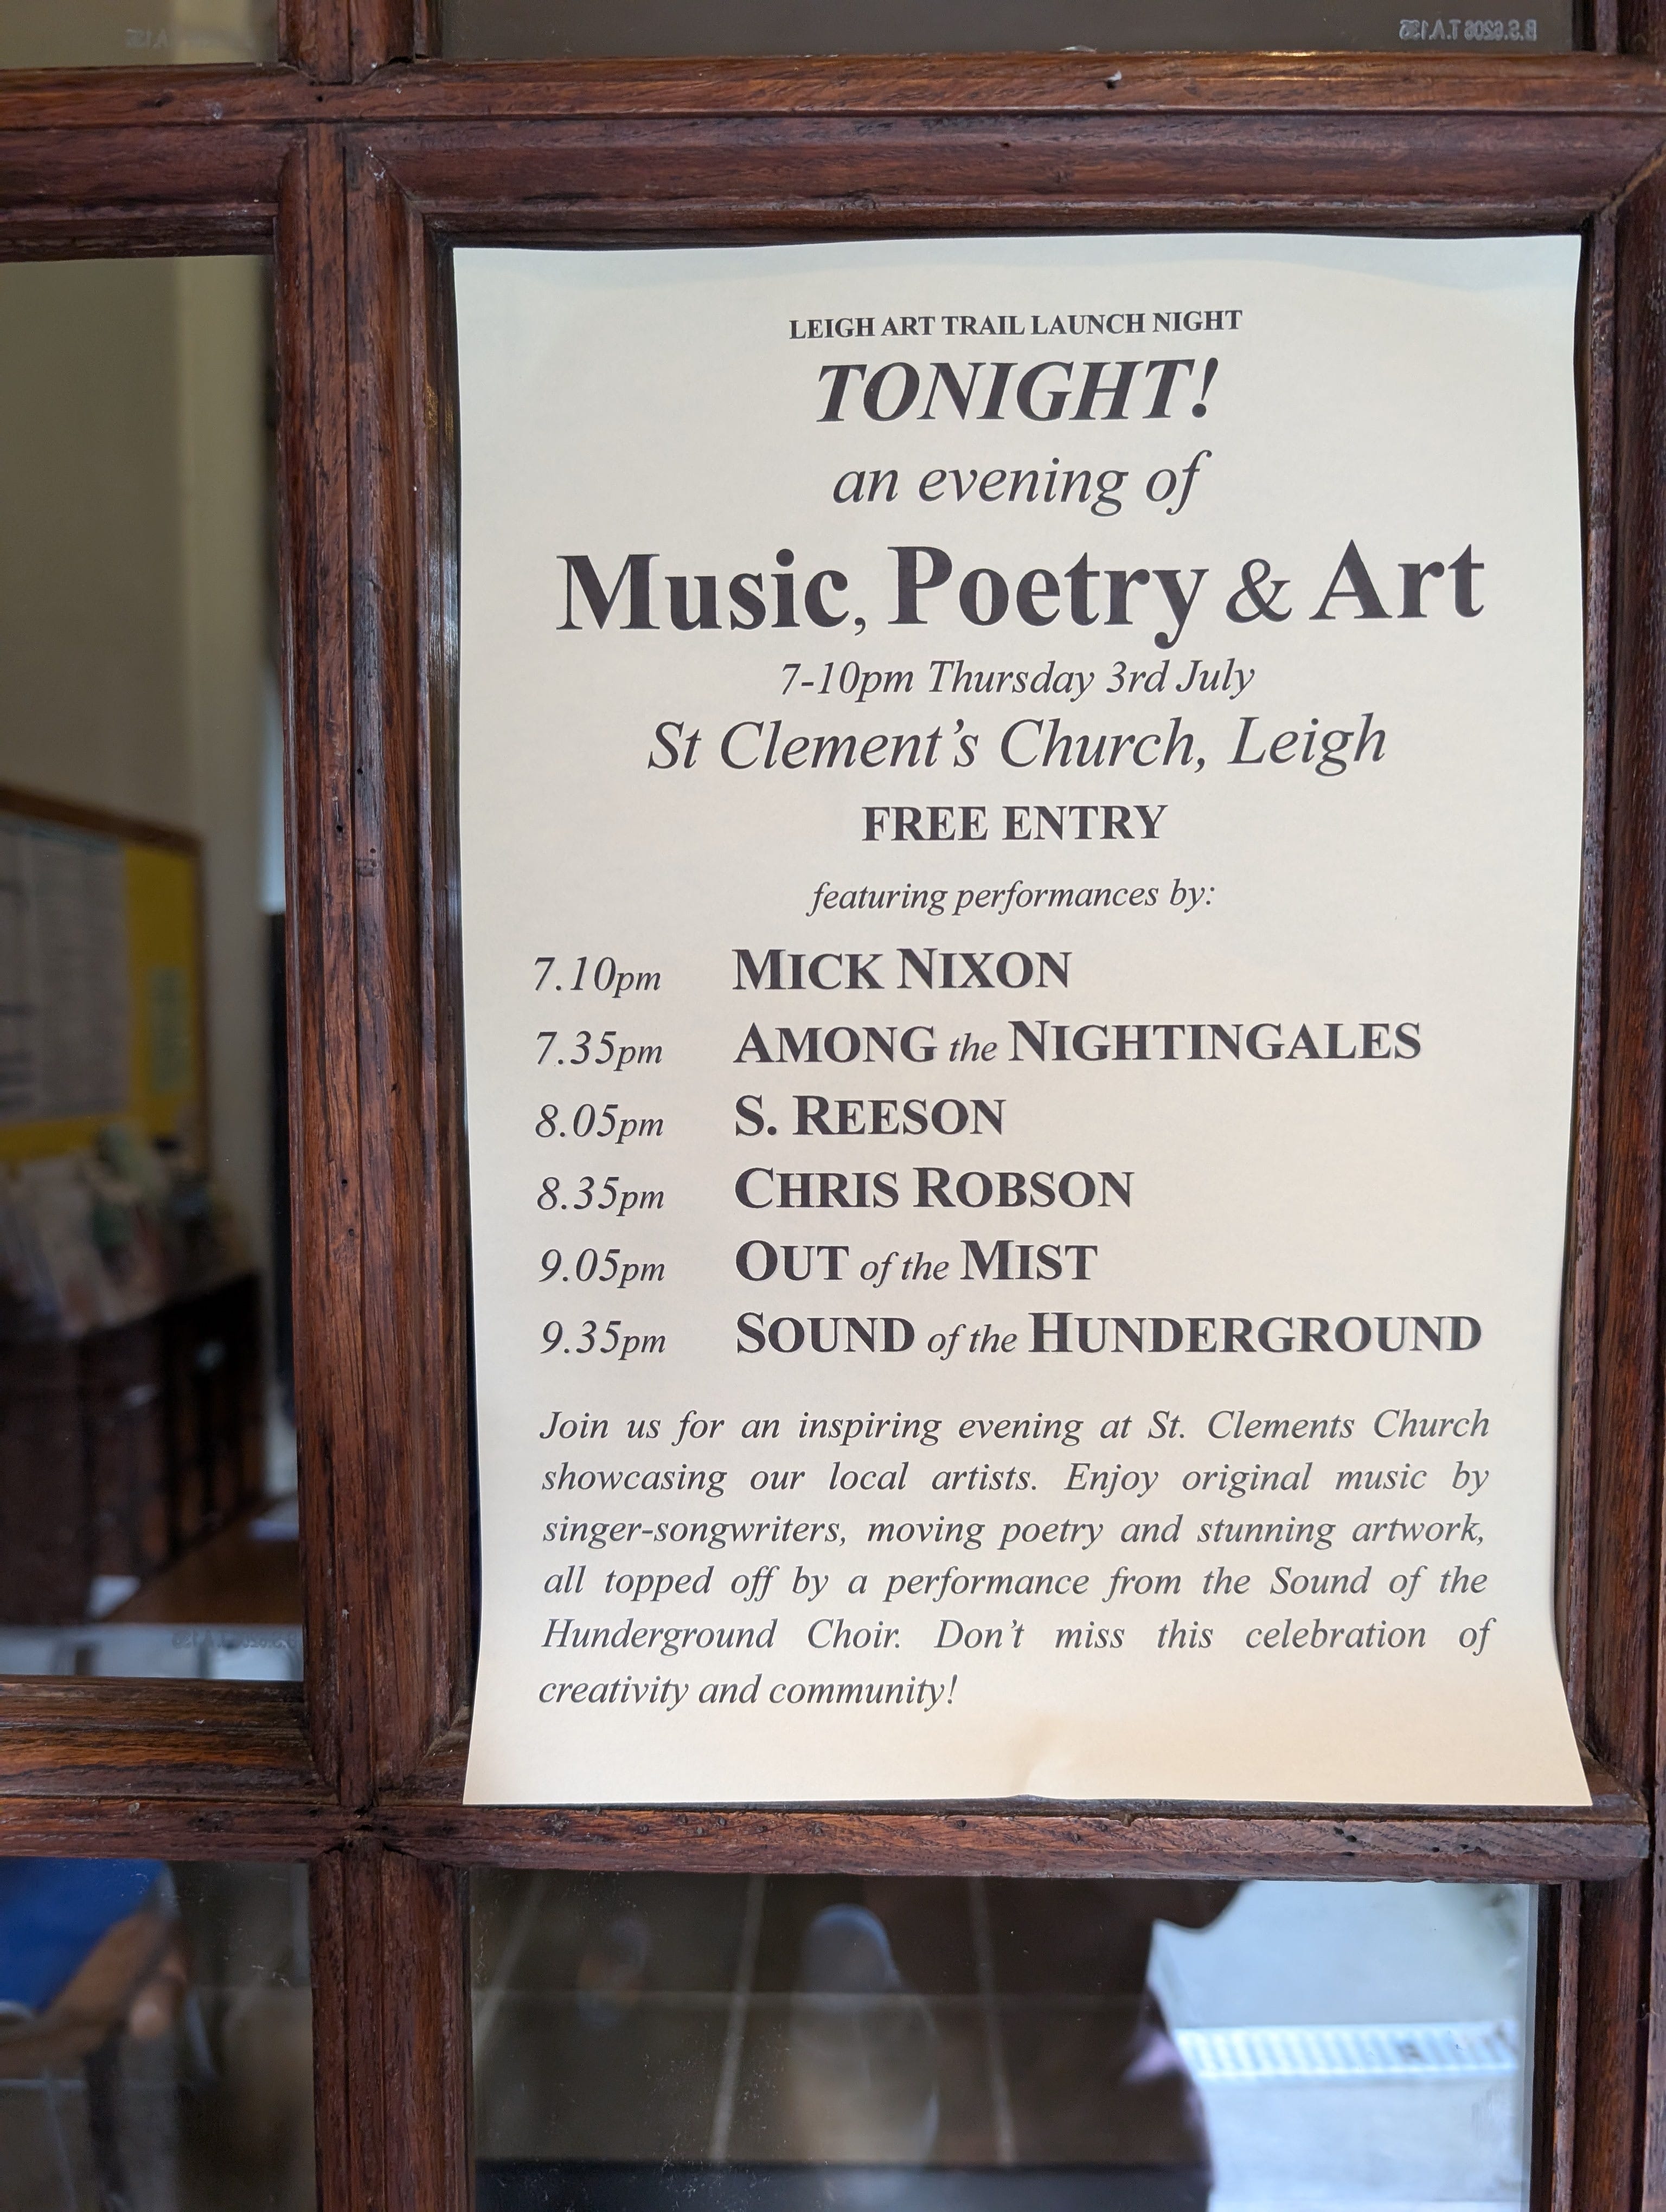 B.S.6206 T.A.155
LEIGH ART TRAIL LAUNCH NIGHT
TONIGHT!
an evening of
Music, Poetry & Art
7-10pm Thursday 3rd July
St Clement's Church, Leigh
FREE ENTRY
featuring performances by:
7.10pm MICK NIXON
7.35pm AMONG the NIGHTINGALES
8.05pm S. REESON
8.35pm CHRIS ROBSON
9.05pm OUT of the MIST
9.35pm SOUND of the HUNDERGROUND
Join us for an inspiring evening at St. Clements Church
showcasing our local artists. Enjoy original music by
singer-songwriters, moving poetry and stunning artwork,
all topped off by a performance from the Sound of the
Hunderground Choir. Don't miss this celebration of
creativity and community!